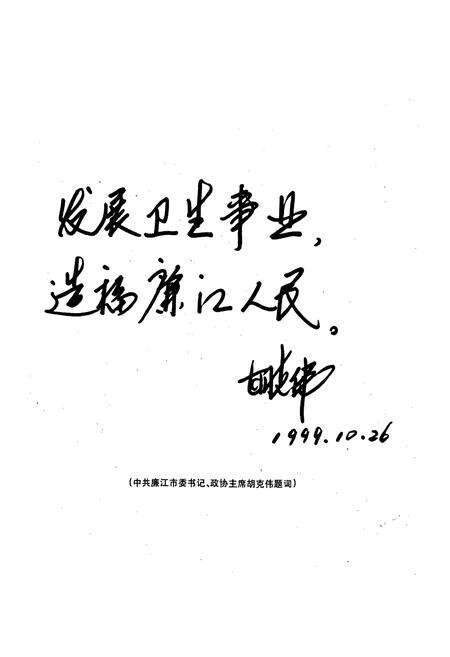 发展卫生事业，
造福廉江人民。
胡克伟
1999.10.26
（中共廉江市委书记、政协主席胡克伟题词）